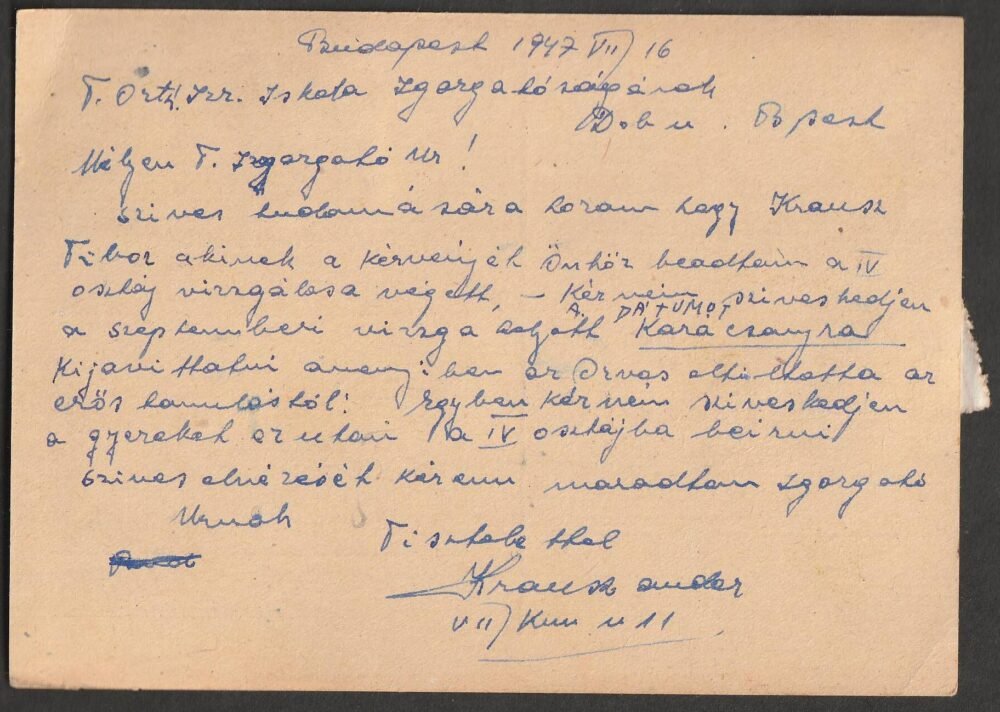 Budapest 1947 VII) 16
T. Orth. Izr. Iskola Igazgatóságának
Dob u. Bpest
Mélyen T. Igazgató Ur!
Szives tudomására hozom hogy Krausz
Tibor akinek a kérvényét Önhöz beadtam a IV
osztáj vizsgálása végett, – Kérném sziveskedjen
A. DÁTUMOT
a szeptemberi vizsga helyett Karácsonyra
Kijavittatni amenyiben az Orvos eltiltotta az
erős tanulástól! Egyben kérném sziveskedjen
a gyereket ezutan a IV osztájba beirni
Szives elnézését kérem maradtam Igazgató
Urnak
Tisztelettel
Krausz andor
VII) Kun u 11